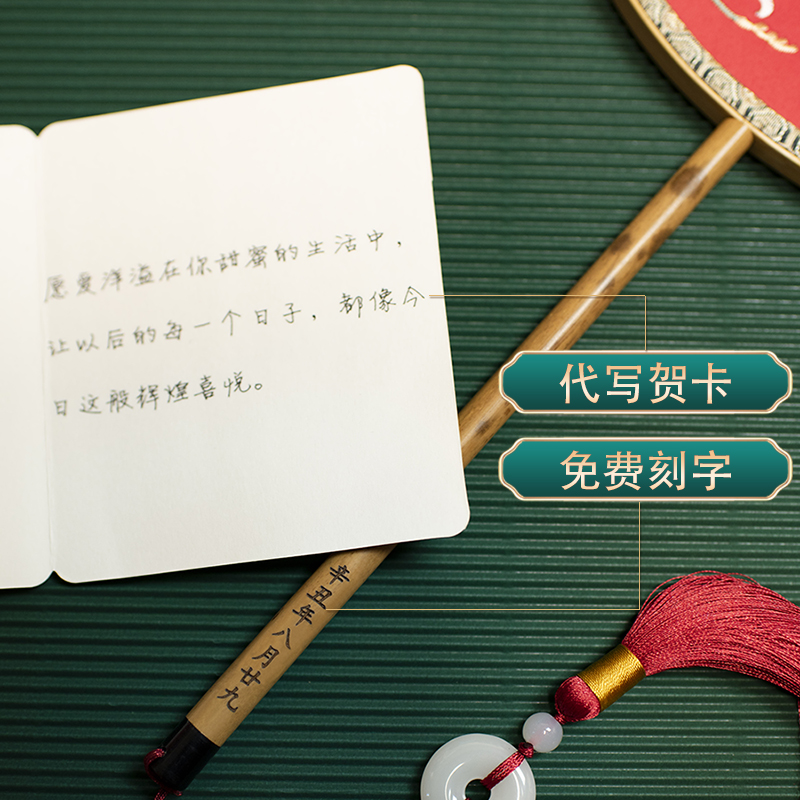 愿爱洋溢在你甜蜜的生活中，
让以后的每一个日子，都像今
日这般辉煌喜悦。
代写贺卡
免费刻字
辛丑年八月廿九